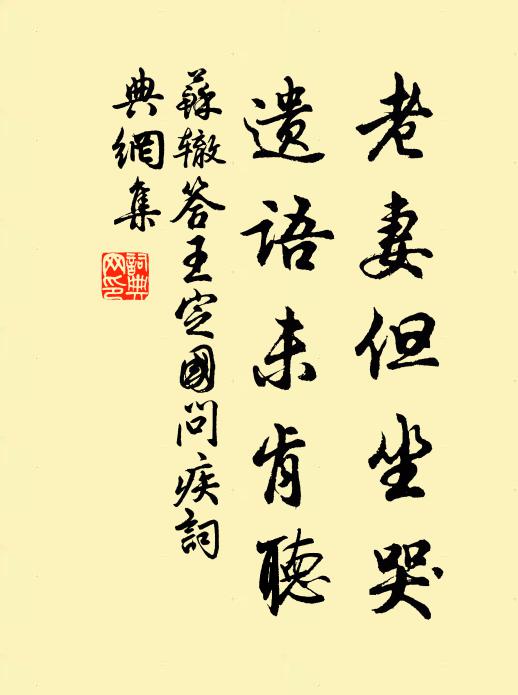 老妻但坐哭
遺語未肯聽
蘇轍答王定國問疾詞
典網集
詞典網印